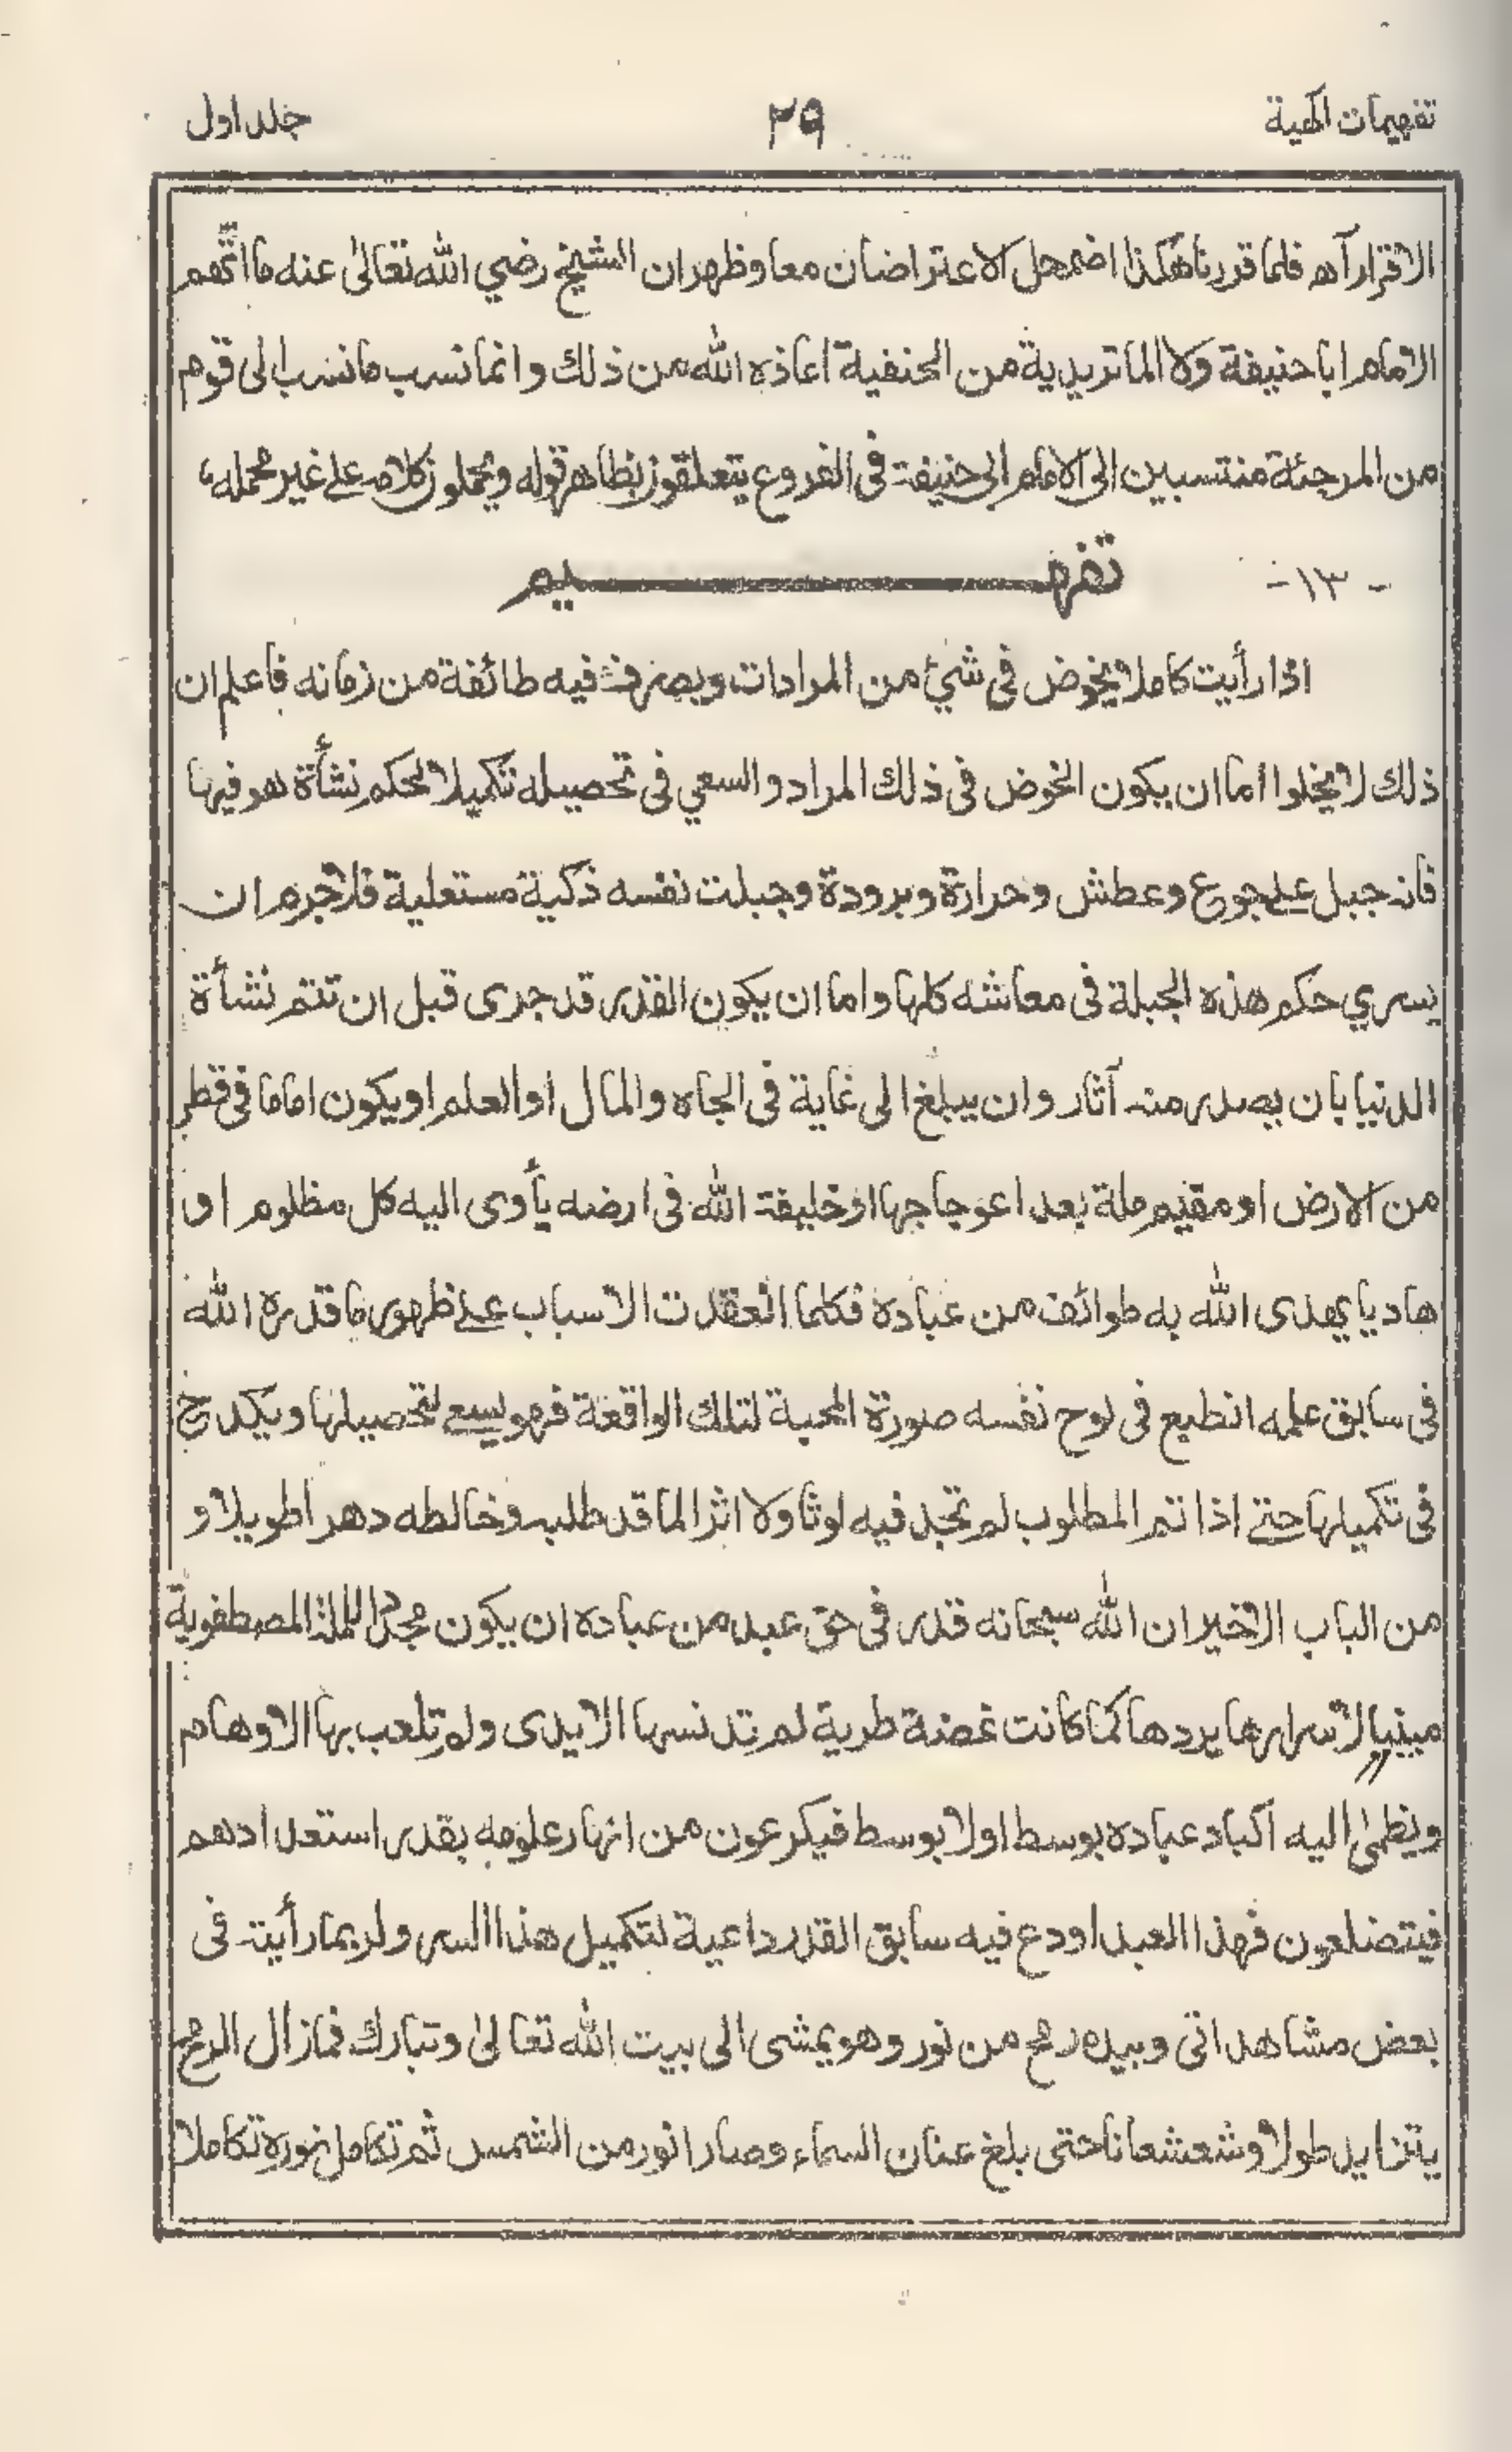 تفهيمات الٰهية
۲۹
جلد اول
الاقرار آه فلما قررنا هكذا اضمحل الاعتراضان معا وظهر ان الشيخ رضي الله تعالىٰ عنه ما اتّهم
الامام ابا حنيفة ولا الماتريدية من الحنفية اعاذه الله من ذلك وانما نسب ما نسب الى قوم
من المرجئة منتسبين الى الامام ابى حنيفة فى الفروع يتعلقون بظاهر قوله ويحملون كلامه على غير محمله،
- ۱۳ -
تفهـــــيم
اذا رأيت كاملا يخوض فى شئ من المرادات ويصرف فيه طائفة من زمانه فاعلم ان
ذلك لا يخلوا اما ان يكون الخوض فى ذلك المراد والسعي فى تحصيله تكميلا لحكم نشأة هو فيها
فانه جبل على جوع وعطش وحرارة وبرودة وجبلت نفسه ذكية مستعلية فلا جرم ان
يسري حكم هذه الجبلة فى معاشه كلها واما ان يكون القدر قد جرى قبل ان تتم نشأة
الدنيا بان يصدر منه آثار وان يبلغ الى غاية فى الجاه والمال او العلم او يكون اماما فى قطر
من الارض او مقيم ملة بعد اعوجاجها او خليفة الله فى ارضه يأوى اليه كل مظلوم او
هاديا يهدى الله به طوائف من عباده فكلما انعقدت الاسباب على ظهور ما قدره الله
فى سابق علمه انطبع فى لوح نفسه صورة المحبة لتلك الواقعة فهو يسعى لتحصيلها ويكدح
فى تكميلها حتى اذا تم المطلوب لم تجد فيه لوثا ولا اثرا لما قد طلبه وخالطه دهرا طويلا و
من الباب الاخير ان الله سبحانه قدر فى حق عبد من عباده ان يكون مجددا للملة المصطفوية
مبينا لاسرارها يردها كما كانت غضة طرية لم تدنسها الايدى ولم تلعب بها الاوهام
ويظمئ اليه اكباد عباده بوسط او لا بوسط فيكرعون من انهار علومه بقدر استعدادهم
فيتضلعون فهذا العبد اودع فيه سابق القدر داعية لتكميل هذا السر ولربما رأيته فى
بعض مشاهداتى وبيده رمح من نور وهو يمشى الى بيت الله تعالىٰ وتبارك فما زال الرمح
يتزايد طولا وشعشعانا حتى بلغ عنان السماء وصار انور من الشمس ثم تكامل نوره تكاملا